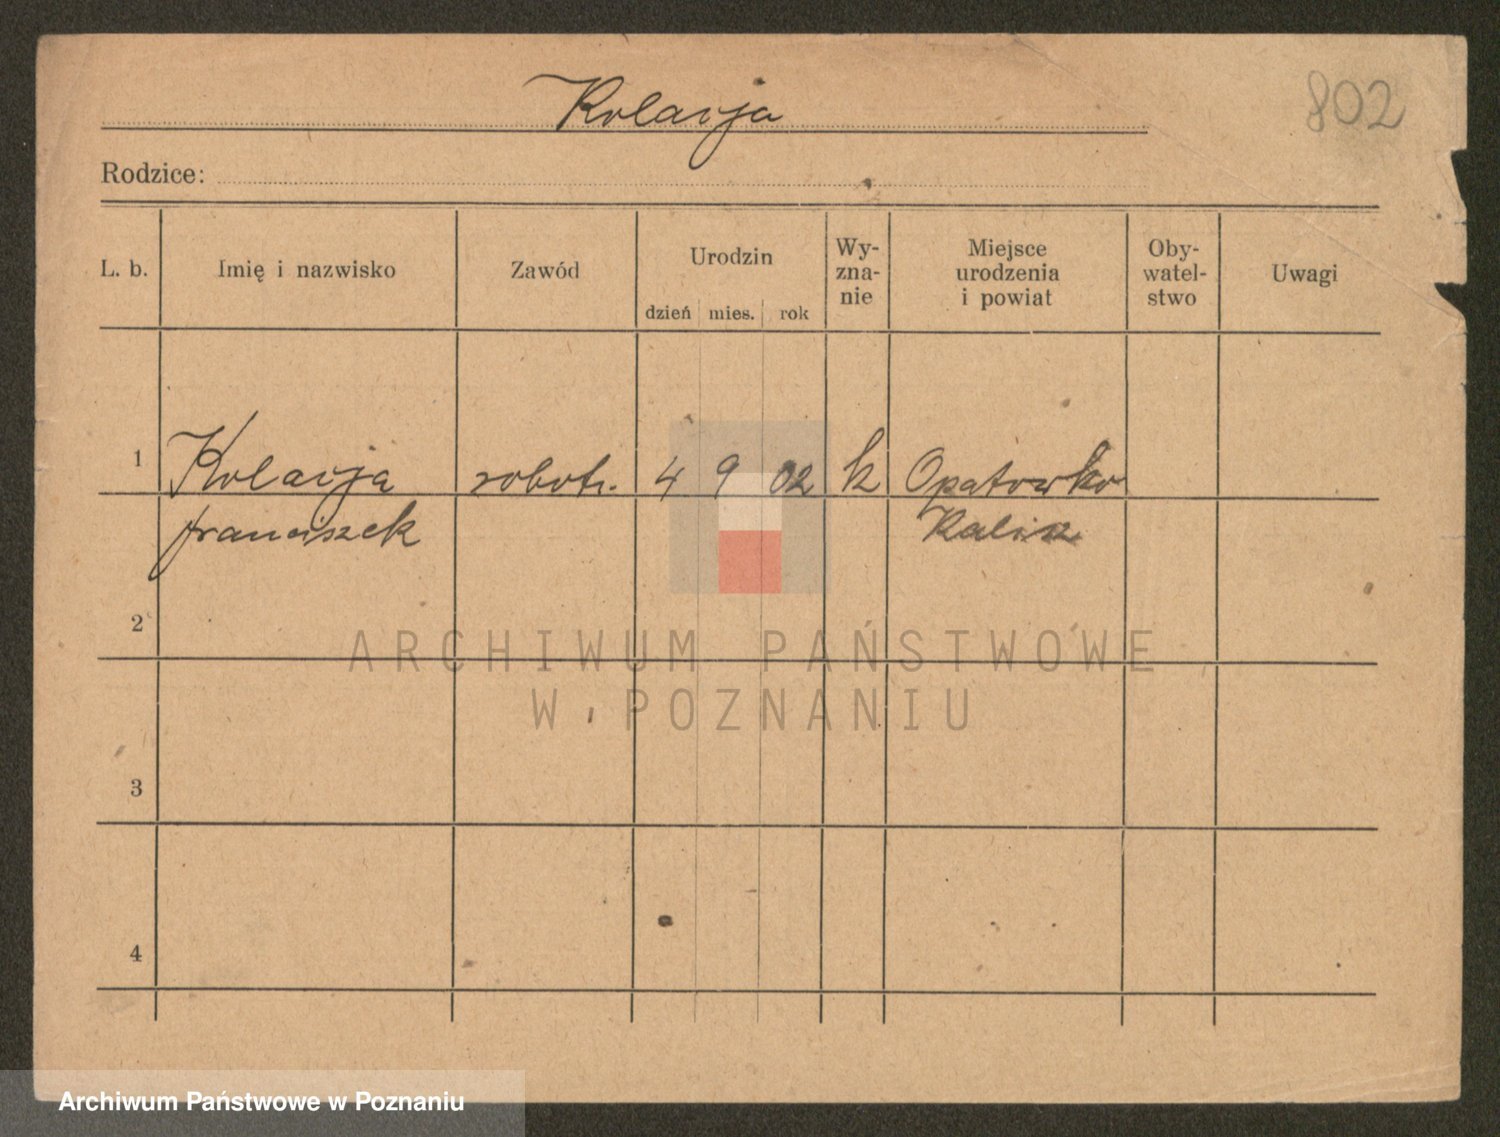 Kolacja
802
Rodzice:
L. b.
Imię i nazwisko
Zawód
Urodzin
dzień mies. rok
Wy-
zna-
nie
Miejsce
urodzenia
i powiat
Oby-
watel-
stwo
Uwagi
1 Kolacja robotn. 4 9 02 k Opatowko
franciszek Kalisz
2
3
4
ARCHIWUM PAŃSTWOWE
W POZNANIU
Archiwum Państwowe w Poznaniu